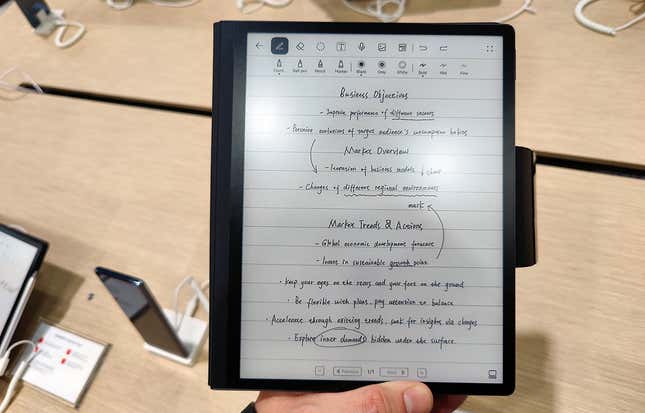 Fount.. Ball pen Pencil Marker Black Gray White Bold Mid Fine
Business Objectives
- Improve performance of different sectors
- Perceive evolutions of target audience's consumption habits
Market Overview
- Innovation of business models & chan
- Changes of different regional environments
mark
Market Trends & Actions
- Global economic development forecast
- Invest in sustainable growth point
· Keep your eyes on the stars and your feet on the ground
· Be flexible with plans, pay attention to balance
· Accelerate through existing trends, seek for insights via changes
· Explore inner demands hidden under the surface
Previous 1/1 Next